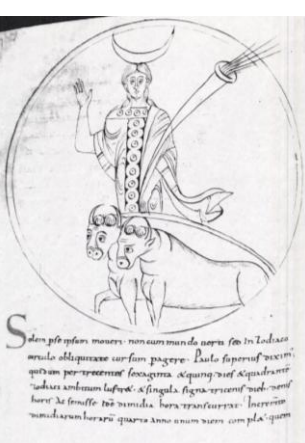 Solem p se ipsum moueri non cum mundo uerti sed in Zodiaco
circulo obliquitate cursum pagere. Paulo superius diximus
quidem per trecentos sexaginta & quinq; dies & quadrante
zodiaci ambitum & singula signa tricenis dieb; denis
horis Ac semisse dimidia hora transcurrat.
dimidiarum horarũ quarto anno unum diem cõplẽ